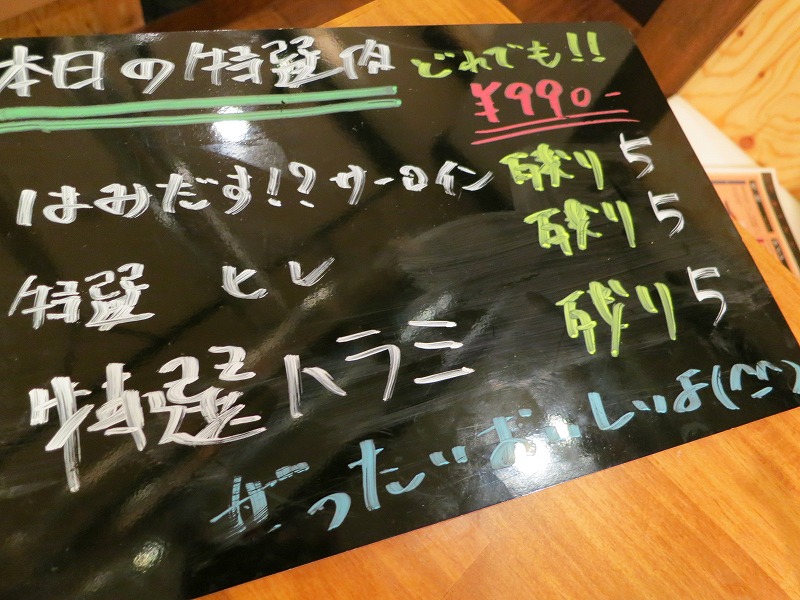 本日の特選肉 どれでも!!
¥990-
はみだす!?サーロイン 残り5
特選 ヒレ 残り5
特選ハラミ 残り5
ぜったいおいしいよ(^^)